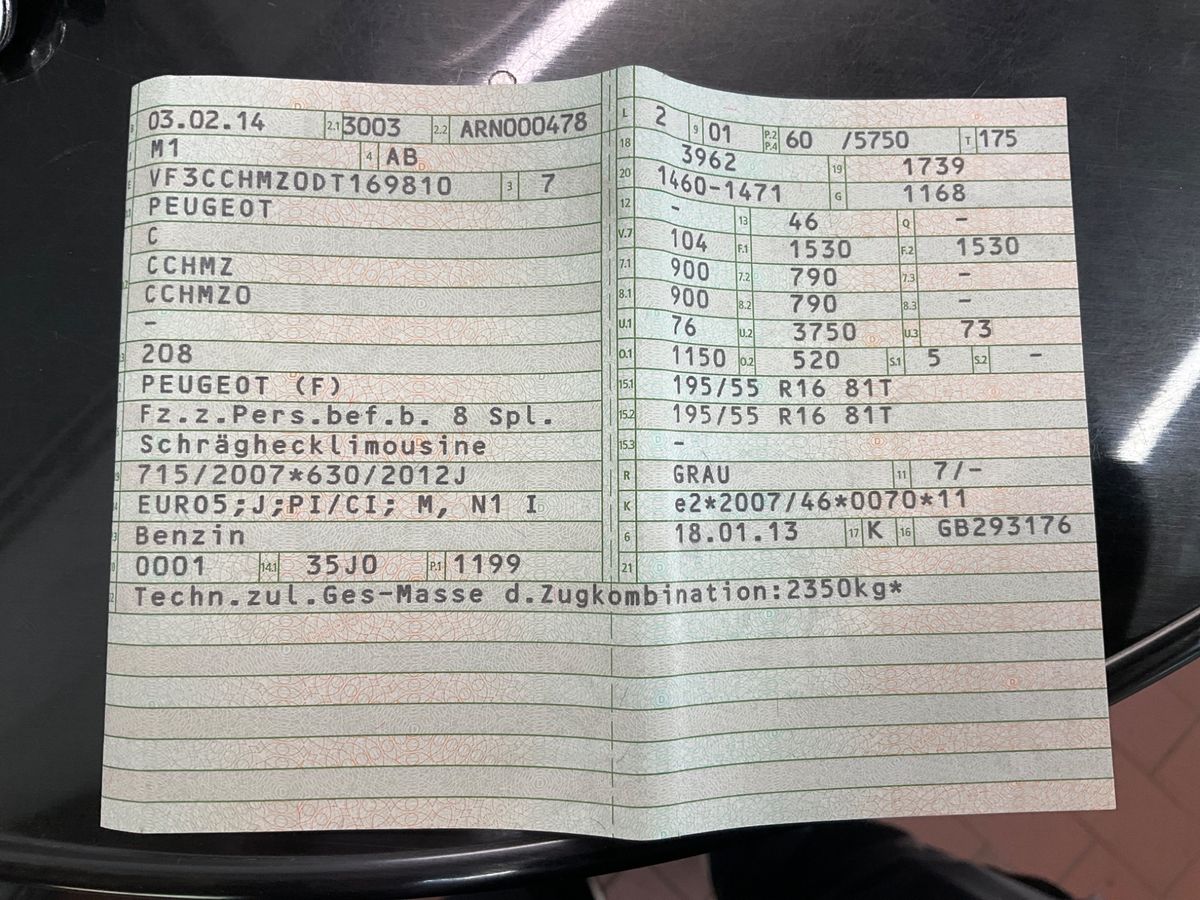 03.02.14 2.1 3003 2.2 ARN000478
M1 4 AB
VF3CCHMZ0DT169810 3 7
PEUGEOT
C
CCHMZ
CCHMZ0
-
208
PEUGEOT (F)
Fz.z.Pers.bef.b. 8 Spl.
Schräghecklimousine
715/2007*630/2012J
EURO5;J;PI/CI; M, N1 I
Benzin
0001 14.1 35J0 P.1 1199
L 2 9 01 P.2 P.4 60 /5750 T 175
18 3962 19 1739
20 1460-1471 G 1168
12 - 13 46 Q -
V.7 104 F.1 1530 F.2 1530
7.1 900 7.2 790 7.3 -
8.1 900 8.2 790 8.3 -
U.1 76 U.2 3750 U.3 73
O.1 1150 O.2 520 S.1 5 S.2 -
15.1 195/55 R16 81T
15.2 195/55 R16 81T
15.3 -
R GRAU 11 7/-
K e2*2007/46*0070*11
6 18.01.13 17 K 16 GB293176
21
Techn.zul.Ges-Masse d.Zugkombination:2350kg*